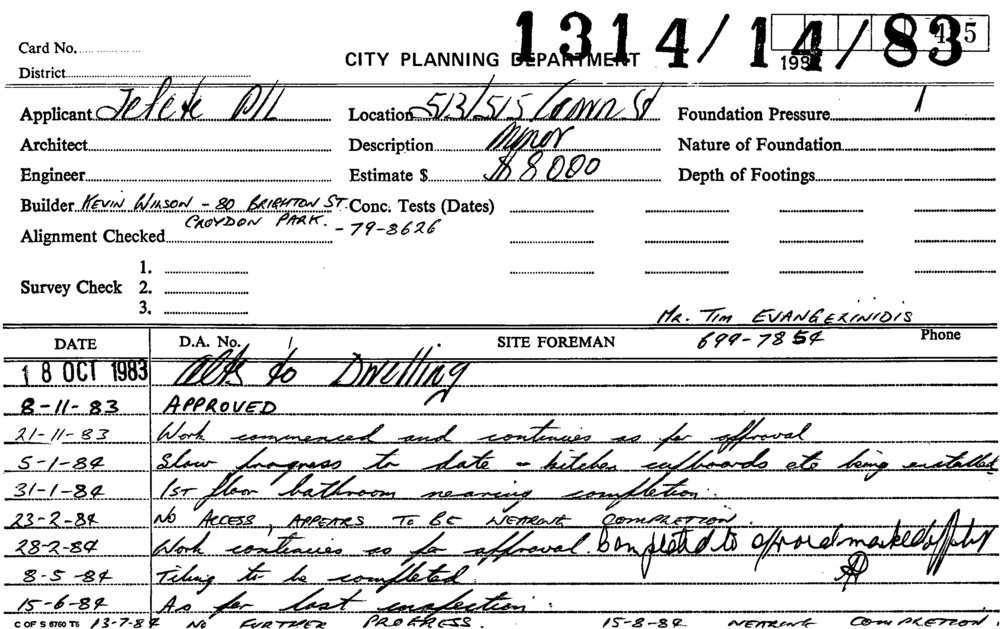 1314/14/83
45
Card No.
CITY PLANNING DEPARTMENT 198
District
Applicant Jefete P/L Location 513/515 Crown St Foundation Pressure
Architect Description Minor Nature of Foundation
Engineer Estimate $ $8000 Depth of Footings
Builder KEVIN WILSON - 80 BRIGHTON ST. Conc. Tests (Dates)
CROYDON PARK. - 79-8626
Alignment Checked
1.
Survey Check 2.
3.
MR. TIM EVANGERINIDIS
DATE D.A. No. SITE FOREMAN 699-7854 Phone
18 OCT 1983 Alts to Dwelling
8-11-83 APPROVED
21-11-83 Work commenced and continues as per approval
5-1-84 Slow progress to date - kitchen cupboards etc being installed
31-1-84 1ST floor bathroom nearing completion.
23-2-84 NO ACCESS, APPEARS TO BE NEARING COMPLETION.
28-2-84 Work continues as per approval. Completed to approval marked off
8-5-84 Tiling to be completed
15-6-84 As per last inspection.
C OF S 6760 T6 13-7-84 NO FURTHER PROGRESS. 15-8-84 NEARING COMPLETION.